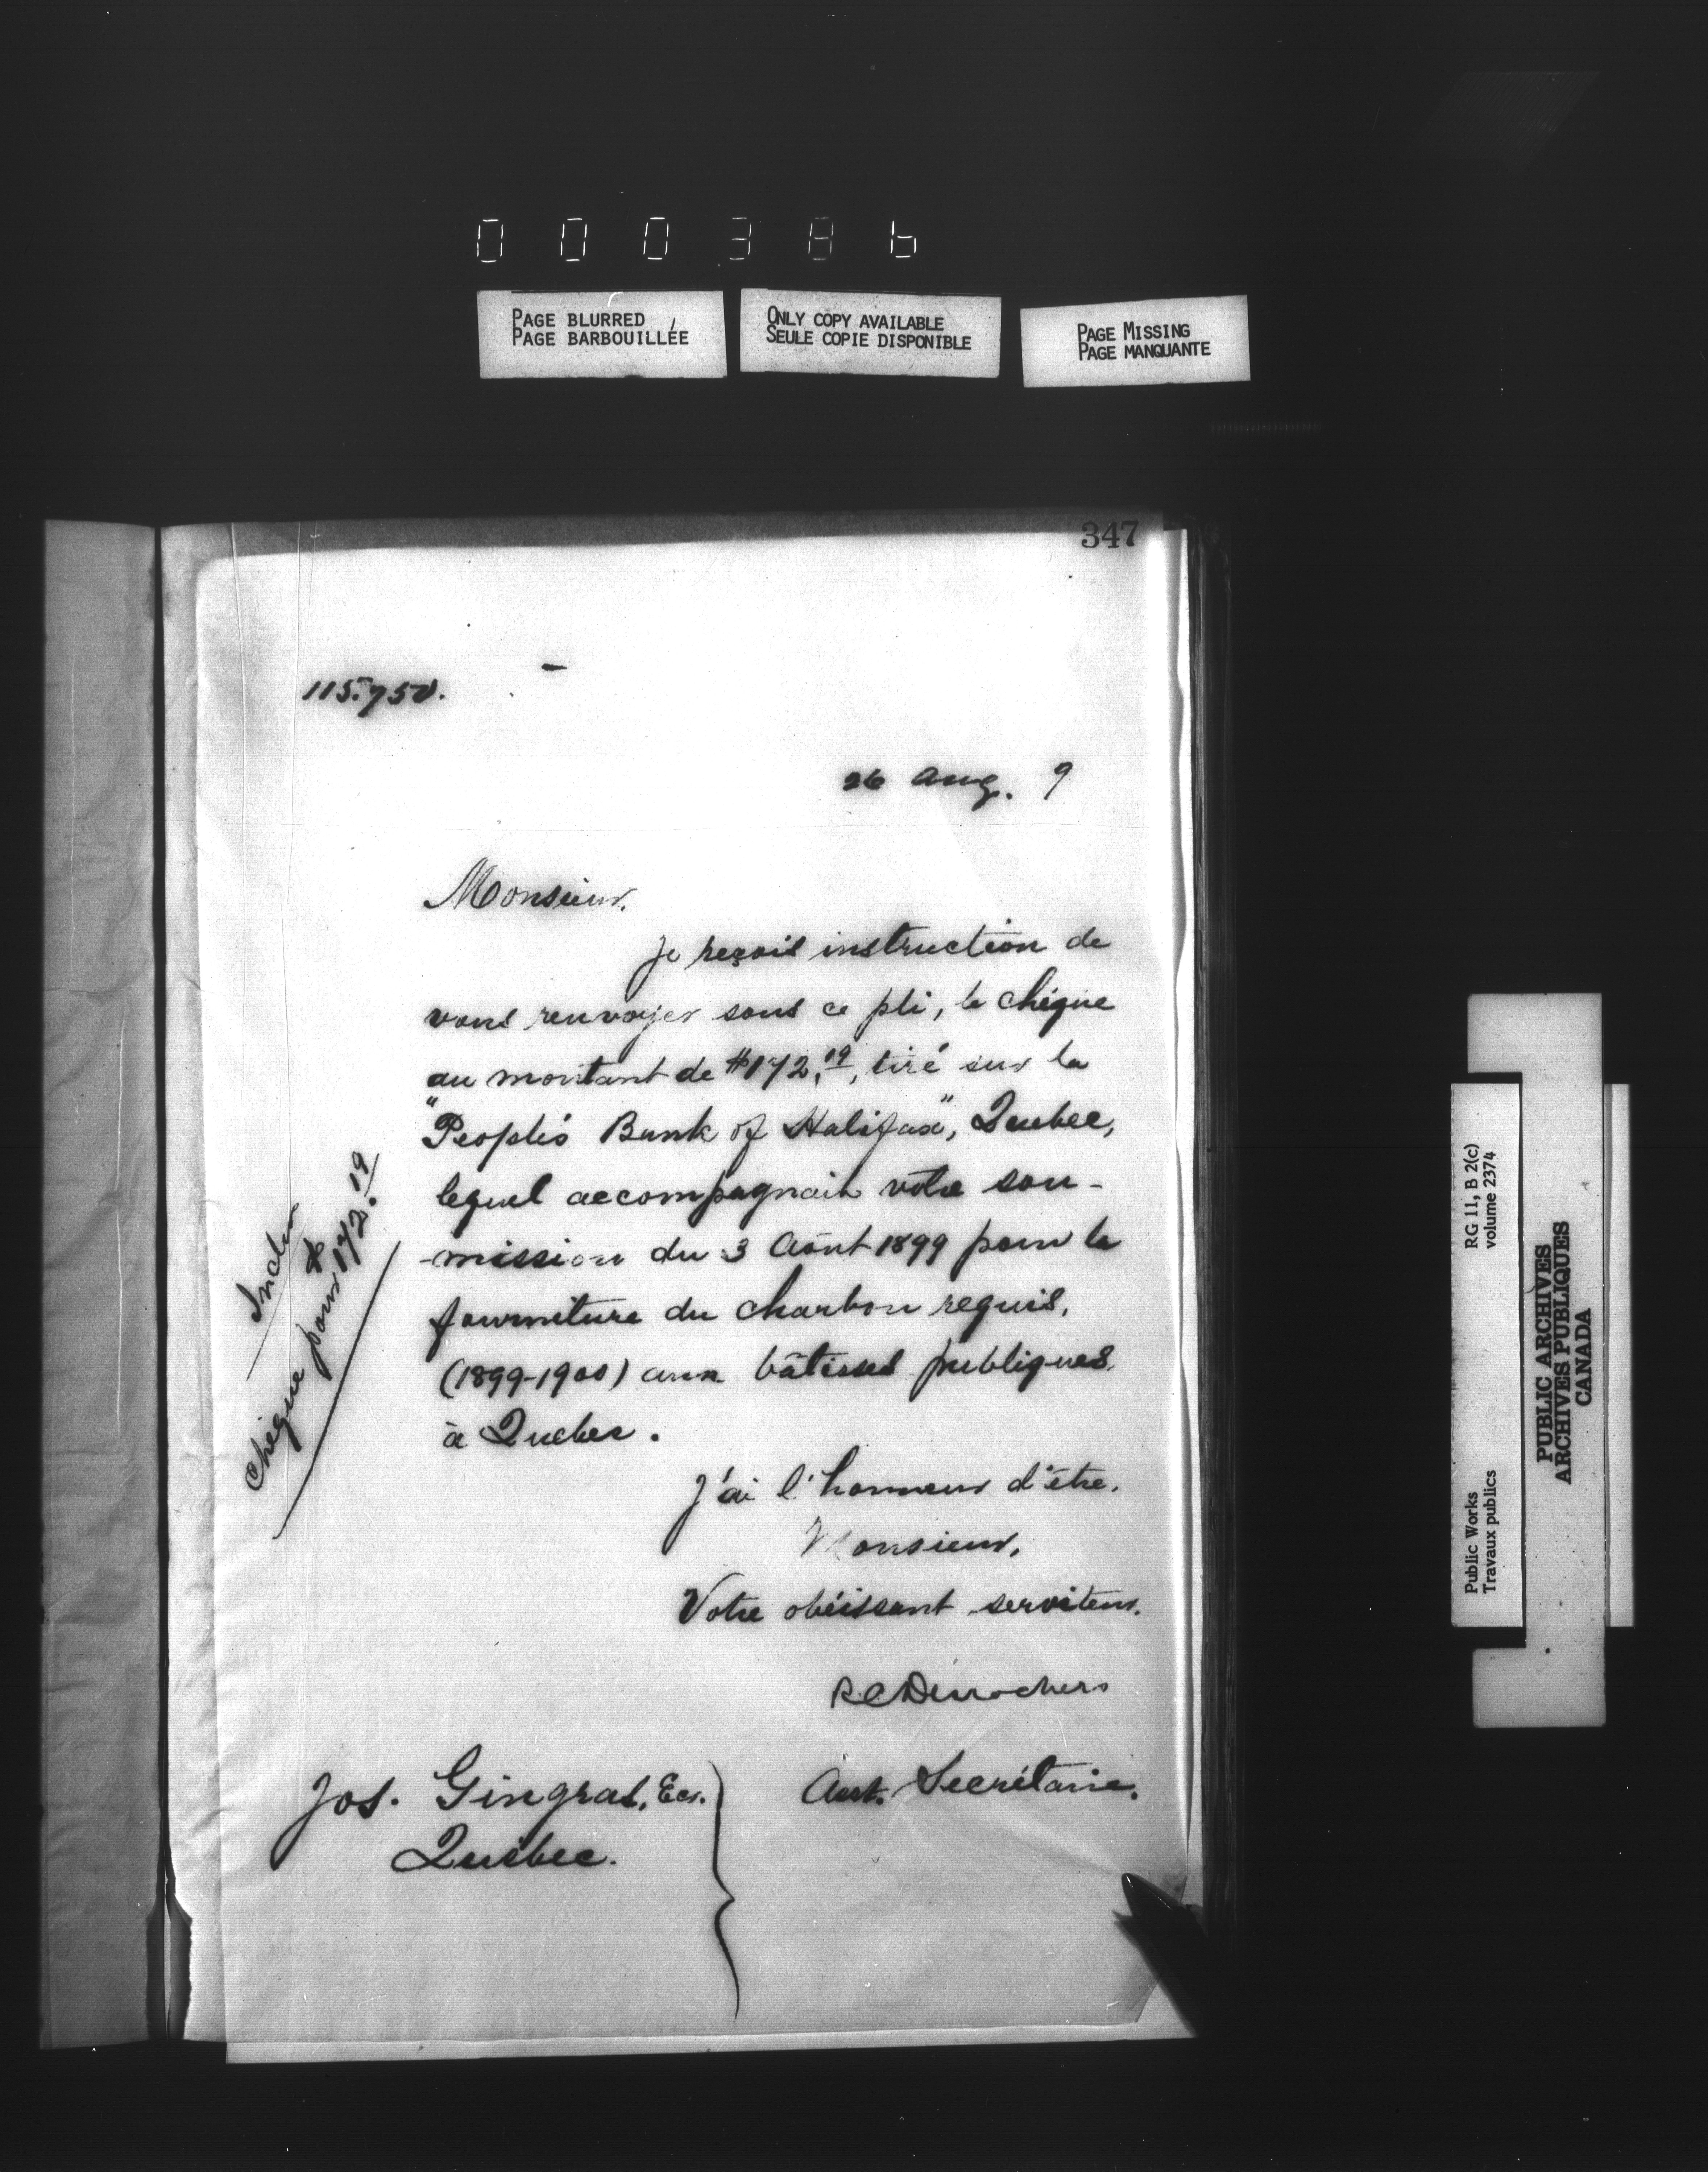 000386
PAGE BLURRED
PAGE BARBOUILLÉE
ONLY COPY AVAILABLE
SEULE COPIE DISPONIBLE
PAGE MISSING
PAGE MANQUANTE
347
115.750.
26 Aug. 9
Monsieur,
Je reçois instruction de
vous renvoyer sous ce pli, le chèque
au montant de $172.19, tiré sur la
"People's Bank of Halifax", Quebec,
lequel accompagnait votre sou-
-mission du 3 Août 1899 pour la
fourniture du charbon requis,
(1899-1900) aux bâtisses publiques
à Quebec.
J'ai l'honneur d'être,
Monsieur,
Votre obéissant serviteur,
RCDesrochers
Asst. Secrétaire.
Jos. Gingras, Ecr.
Québec.
Inclu
Chèque pour $172.19
RG 11, B 2(c)
volume 2374
Public Works
Travaux publics
PUBLIC ARCHIVES
ARCHIVES PUBLIQUES
CANADA